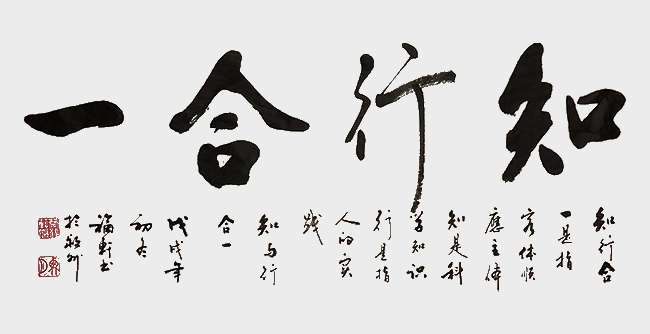 知行合一
知行合
一是指
客体顺
應主体
知是科
学知识
行是指
人的实
践
知与行
合一
戊戌年
初冬
福轩书
於州